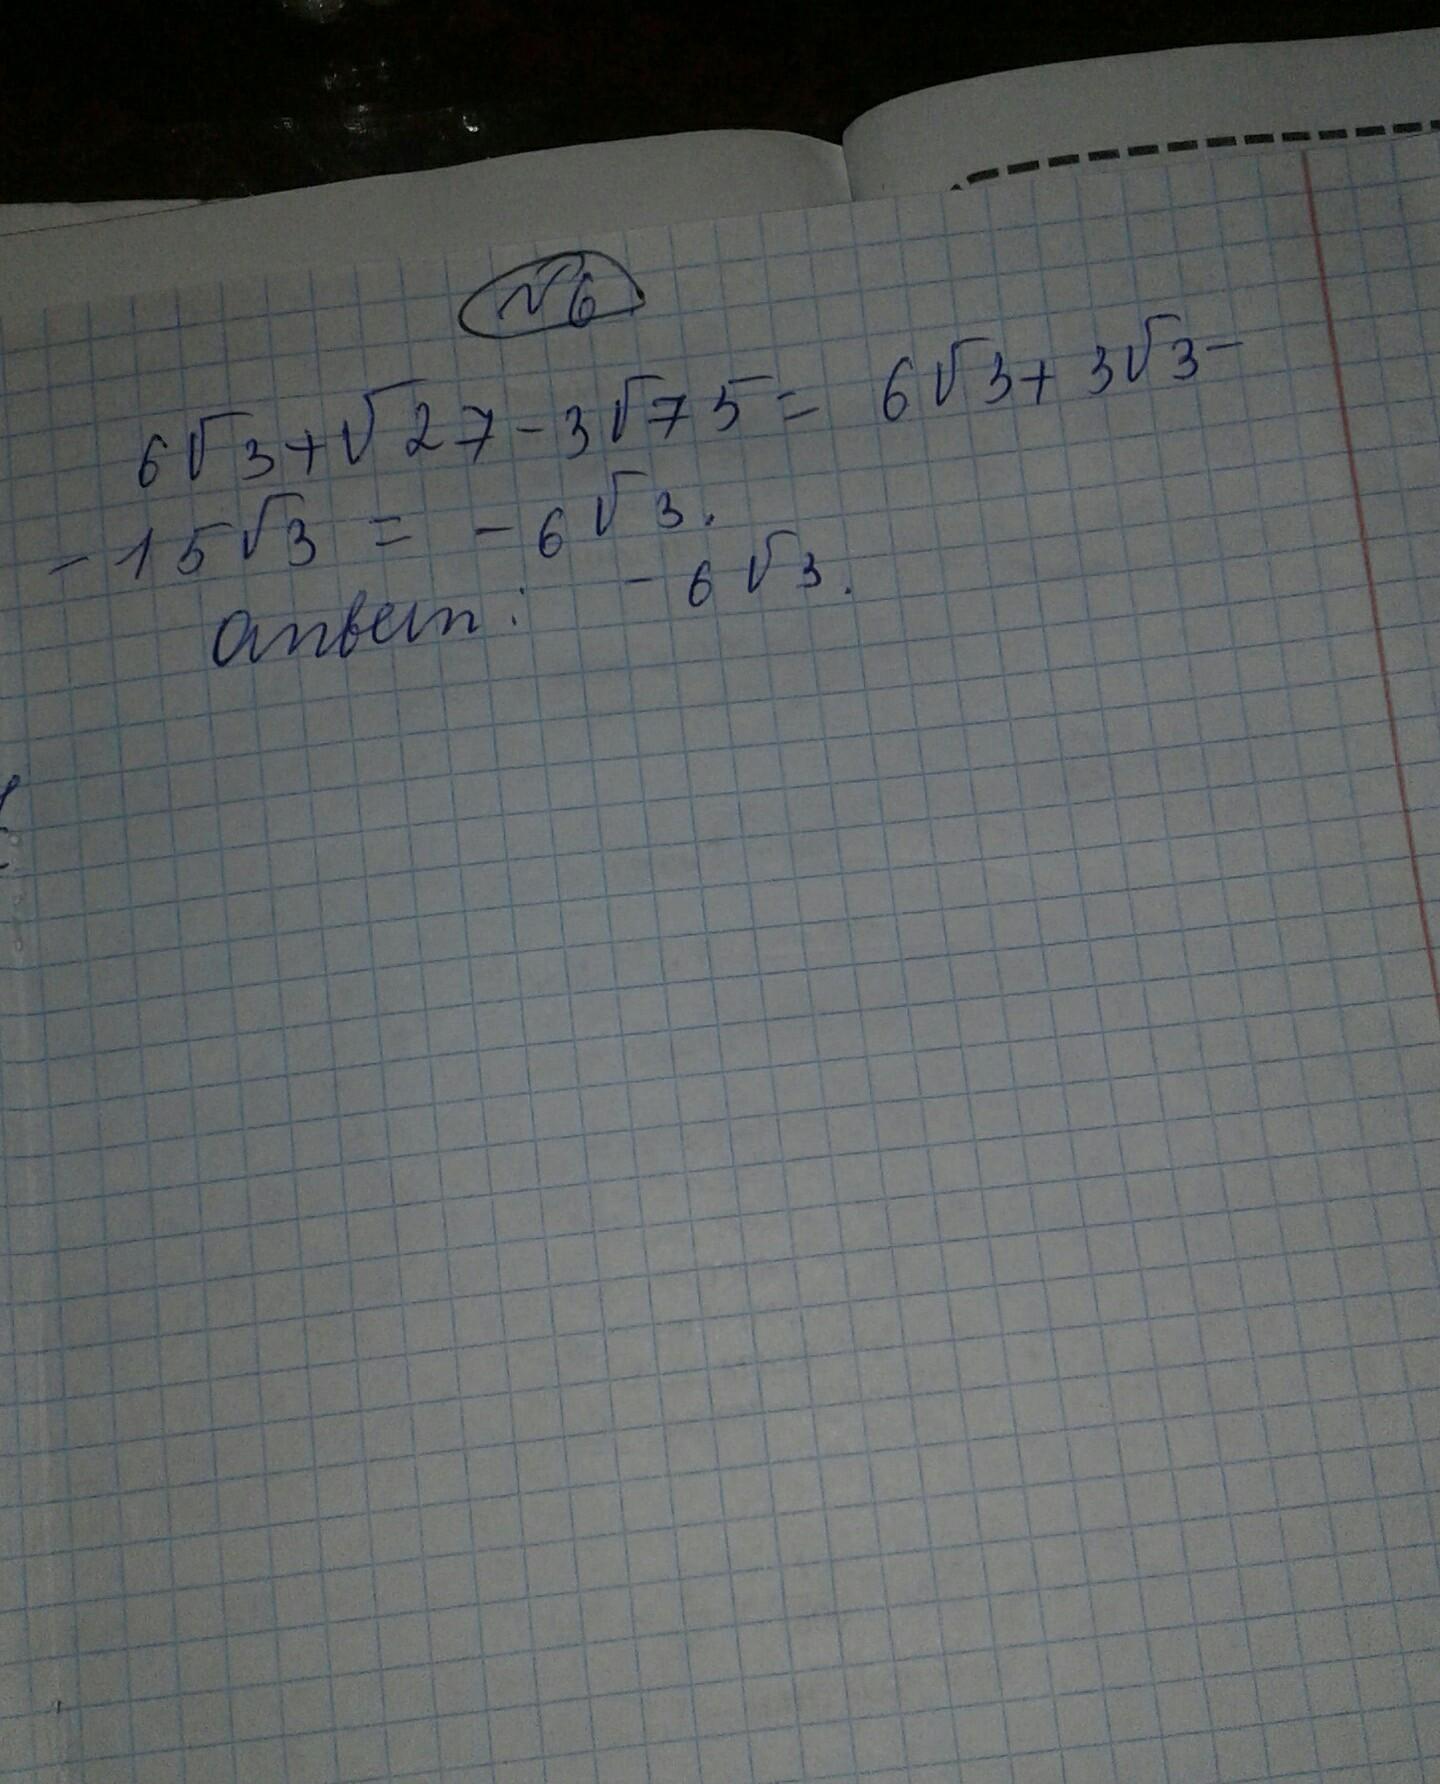 №6
6√3+√27-3√75= 6√3+3√3-
-15√3 = -6√3.
Ответ: -6√3.